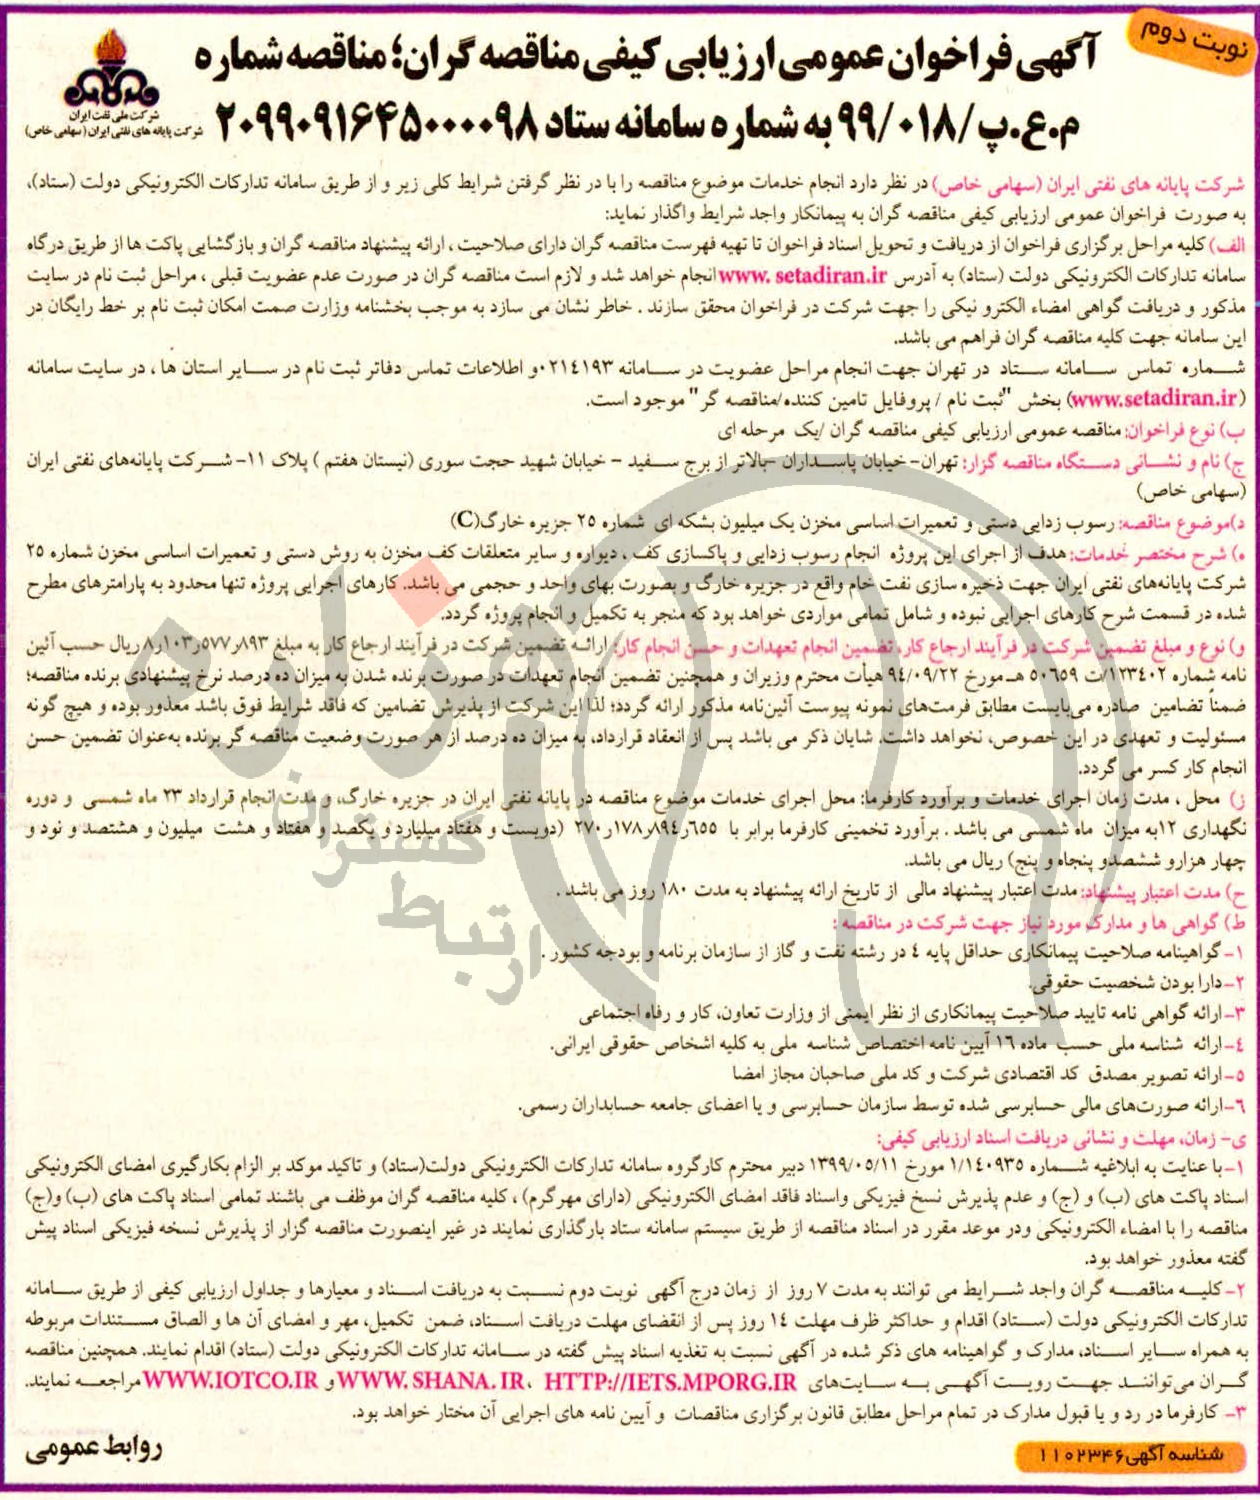 نوبت دوم
آگهی فراخوان عمومی ارزیابی کیفی مناقصه گران؛ مناقصه شماره
م.ع.پ/۹۹/۰۱۸ به شماره سامانه ستاد ۲۰۹۹۰۹۱۶۴۵۰۰۰۰۹۸
شرکت ملی نفت ایران
شرکت پایانه های نفتی ایران (سهامی خاص)
شرکت پایانه های نفتی ایران (سهامی خاص) در نظر دارد انجام خدمات موضوع مناقصه را با در نظر گرفتن شرایط کلی زیر و از طریق سامانه تدارکات الکترونیکی دولت (ستاد)،
به صورت فراخوان عمومی ارزیابی کیفی مناقصه گران به پیمانکار واجد شرایط واگذار نماید:
الف) کلیه مراحل برگزاری فراخوان از دریافت و تحویل اسناد فراخوان تا تهیه فهرست مناقصه گران دارای صلاحیت ، ارائه پیشنهاد مناقصه گران و بازگشایی پاکت ها از طریق درگاه
سامانه تدارکات الکترونیکی دولت (ستاد) به آدرس www. setadiran.ir انجام خواهد شد و لازم است مناقصه گران در صورت عدم عضویت قبلی ، مراحل ثبت نام در سایت
مذکور و دریافت گواهی امضاء الکترو نیکی را جهت شرکت در فراخوان محقق سازند . خاطر نشان می سازد به موجب بخشنامه وزارت صمت امکان ثبت نام بر خط رایگان در
این سامانه جهت کلیه مناقصه گران فراهم می باشد.
شماره تماس سامانه ستاد در تهران جهت انجام مراحل عضویت در سامانه ۰۲۱۴۱۹۳ و اطلاعات تماس دفاتر ثبت نام در سایر استان ها ، در سایت سامانه
(www.setadiran.ir) بخش "ثبت نام / پروفایل تامین کننده/مناقصه گر" موجود است.
ب) نوع فراخوان: مناقصه عمومی ارزیابی کیفی مناقصه گران /یک مرحله ای
ج) نام و نشانی دستگاه مناقصه گزار: تهران- خیابان پاسداران -بالاتر از برج سفید - خیابان شهید حجت سوری (نیستان هفتم ) پلاک ۱۱- شرکت پایانه‌های نفتی ایران
(سهامی خاص)
د)موضوع مناقصه: رسوب زدایی دستی و تعمیرات اساسی مخزن یک میلیون بشکه ای شماره ۲۵ جزیره خارگ(C)
ه) شرح مختصر خدمات: هدف از اجرای این پروژه انجام رسوب زدایی و پاکسازی کف ، دیواره و سایر متعلقات کف مخزن به روش دستی و تعمیرات اساسی مخزن شماره ۲۵
شرکت پایانه‌های نفتی ایران جهت ذخیره سازی نفت خام واقع در جزیره خارگ و بصورت بهای واحد و حجمی می باشد. کارهای اجرایی پروژه تنها محدود به پارامترهای مطرح
شده در قسمت شرح کارهای اجرایی نبوده و شامل تمامی مواردی خواهد بود که منجر به تکمیل و انجام پروژه گردد.
و) نوع و مبلغ تضمین شرکت در فرآیند ارجاع کار، تضمین انجام تعهدات و حسن انجام کار: ارائه تضمین شرکت در فرآیند ارجاع کار به مبلغ ۸٫۱۰۳٫۵۷۷٫۸۹۳ ریال حسب آئین
نامه شماره ۱۲۳۴۰۲/ت ۵۰۶۵۹ هـ مورخ ۹۴/۰۹/۲۲ هیأت محترم وزیران و همچنین تضمین انجام تعهدات در صورت برنده شدن به میزان ده درصد نرخ پیشنهادی برنده مناقصه؛
ضمناً تضامین صادره می‌بایست مطابق فرمت‌های نمونه پیوست آئین‌نامه مذکور ارائه گردد؛ لذا این شرکت از پذیرش تضامین که فاقد شرایط فوق باشد معذور بوده و هیچ گونه
مسئولیت و تعهدی در این خصوص، نخواهد داشت. شایان ذکر می باشد پس از انعقاد قرارداد، به میزان ده درصد از هر صورت وضعیت مناقصه گر برنده به‌عنوان تضمین حسن
انجام کار کسر می گردد.
ز) محل ، مدت زمان اجرای خدمات و برآورد کارفرما: محل اجرای خدمات موضوع مناقصه در پایانه نفتی ایران در جزیره خارگ، و مدت انجام قرارداد ۲۳ ماه شمسی و دوره
نگهداری ۱۲به میزان ماه شمسی می باشد . برآورد تخمینی کارفرما برابر با ۲۷۰٫۱۷۸٫۸۹۴٫۶۵۵ (دویست و هفتاد میلیارد و یکصد و هفتاد و هشت میلیون و هشتصد و نود و
چهار هزارو ششصدو پنجاه و پنج) ریال می باشد.
ح) مدت اعتبار پیشنهاد: مدت اعتبار پیشنهاد مالی از تاریخ ارائه پیشنهاد به مدت ۱۸۰ روز می باشد .
ط) گواهی ها و مدارک مورد نیاز جهت شرکت در مناقصه :
۱- گواهینامه صلاحیت پیمانکاری حداقل پایه ۴ در رشته نفت و گاز از سازمان برنامه و بودجه کشور .
۲-دارا بودن شخصیت حقوقی.
۳-ارائه گواهی نامه تایید صلاحیت پیمانکاری از نظر ایمنی از وزارت تعاون، کار و رفاه اجتماعی
۴-ارائه شناسه ملی حسب ماده ۱۶ آیین نامه اختصاص شناسه ملی به کلیه اشخاص حقوقی ایرانی.
۵-ارائه تصویر مصدق کد اقتصادی شرکت و کد ملی صاحبان مجاز امضا
۶-ارائه صورت‌های مالی حسابرسی شده توسط سازمان حسابرسی و یا اعضای جامعه حسابداران رسمی.
ی- زمان، مهلت و نشانی دریافت اسناد ارزیابی کیفی:
۱-با عنایت به ابلاغیه شماره ۱/۱۴۰۹۳۵ مورخ ۱۳۹۹/۰۵/۱۱ دبیر محترم کارگروه سامانه تدارکات الکترونیکی دولت(ستاد) و تاکید موکد بر الزام بکارگیری امضای الکترونیکی
اسناد پاکت های (ب) و (ج) و عدم پذیرش نسخ فیزیکی واسناد فاقد امضای الکترونیکی (دارای مهرگرم) ، کلیه مناقصه گران موظف می باشند تمامی اسناد پاکت های (ب) و(ج)
مناقصه را با امضاء الکترونیکی ودر موعد مقرر در اسناد مناقصه از طریق سیستم سامانه ستاد بارگذاری نمایند در غیر اینصورت مناقصه گزار از پذیرش نسخه فیزیکی اسناد پیش
گفته معذور خواهد بود.
۲-کلیه مناقصه گران واجد شرایط می توانند به مدت ۷ روز از زمان درج آگهی نوبت دوم نسبت به دریافت اسناد و معیارها و جداول ارزیابی کیفی از طریق سامانه
تدارکات الکترونیکی دولت (ستاد) اقدام و حداکثر ظرف مهلت ۱۴ روز پس از انقضای مهلت دریافت اسناد، ضمن تکمیل، مهر و امضای آن ها و الصاق مستندات مربوطه
به همراه سایر اسناد، مدارک و گواهینامه های ذکر شده در آگهی نسبت به تغذیه اسناد پیش گفته در سامانه تدارکات الکترونیکی دولت (ستاد) اقدام نمایند. همچنین مناقصه
گران می‌توانند جهت رویت آگهی به سایت‌های WWW. SHANA. IR، HTTP://IETS.MPORG.IR و WWW.IOTCO.IR مراجعه نمایند.
۳- کارفرما در رد و یا قبول مدارک در تمام مراحل مطابق قانون برگزاری مناقصات و آیین نامه های اجرایی آن مختار خواهد بود.
شناسه آگهی ۱۱۰۲۳۴۶
روابط عمومی
هزاره
ارتباط گستران